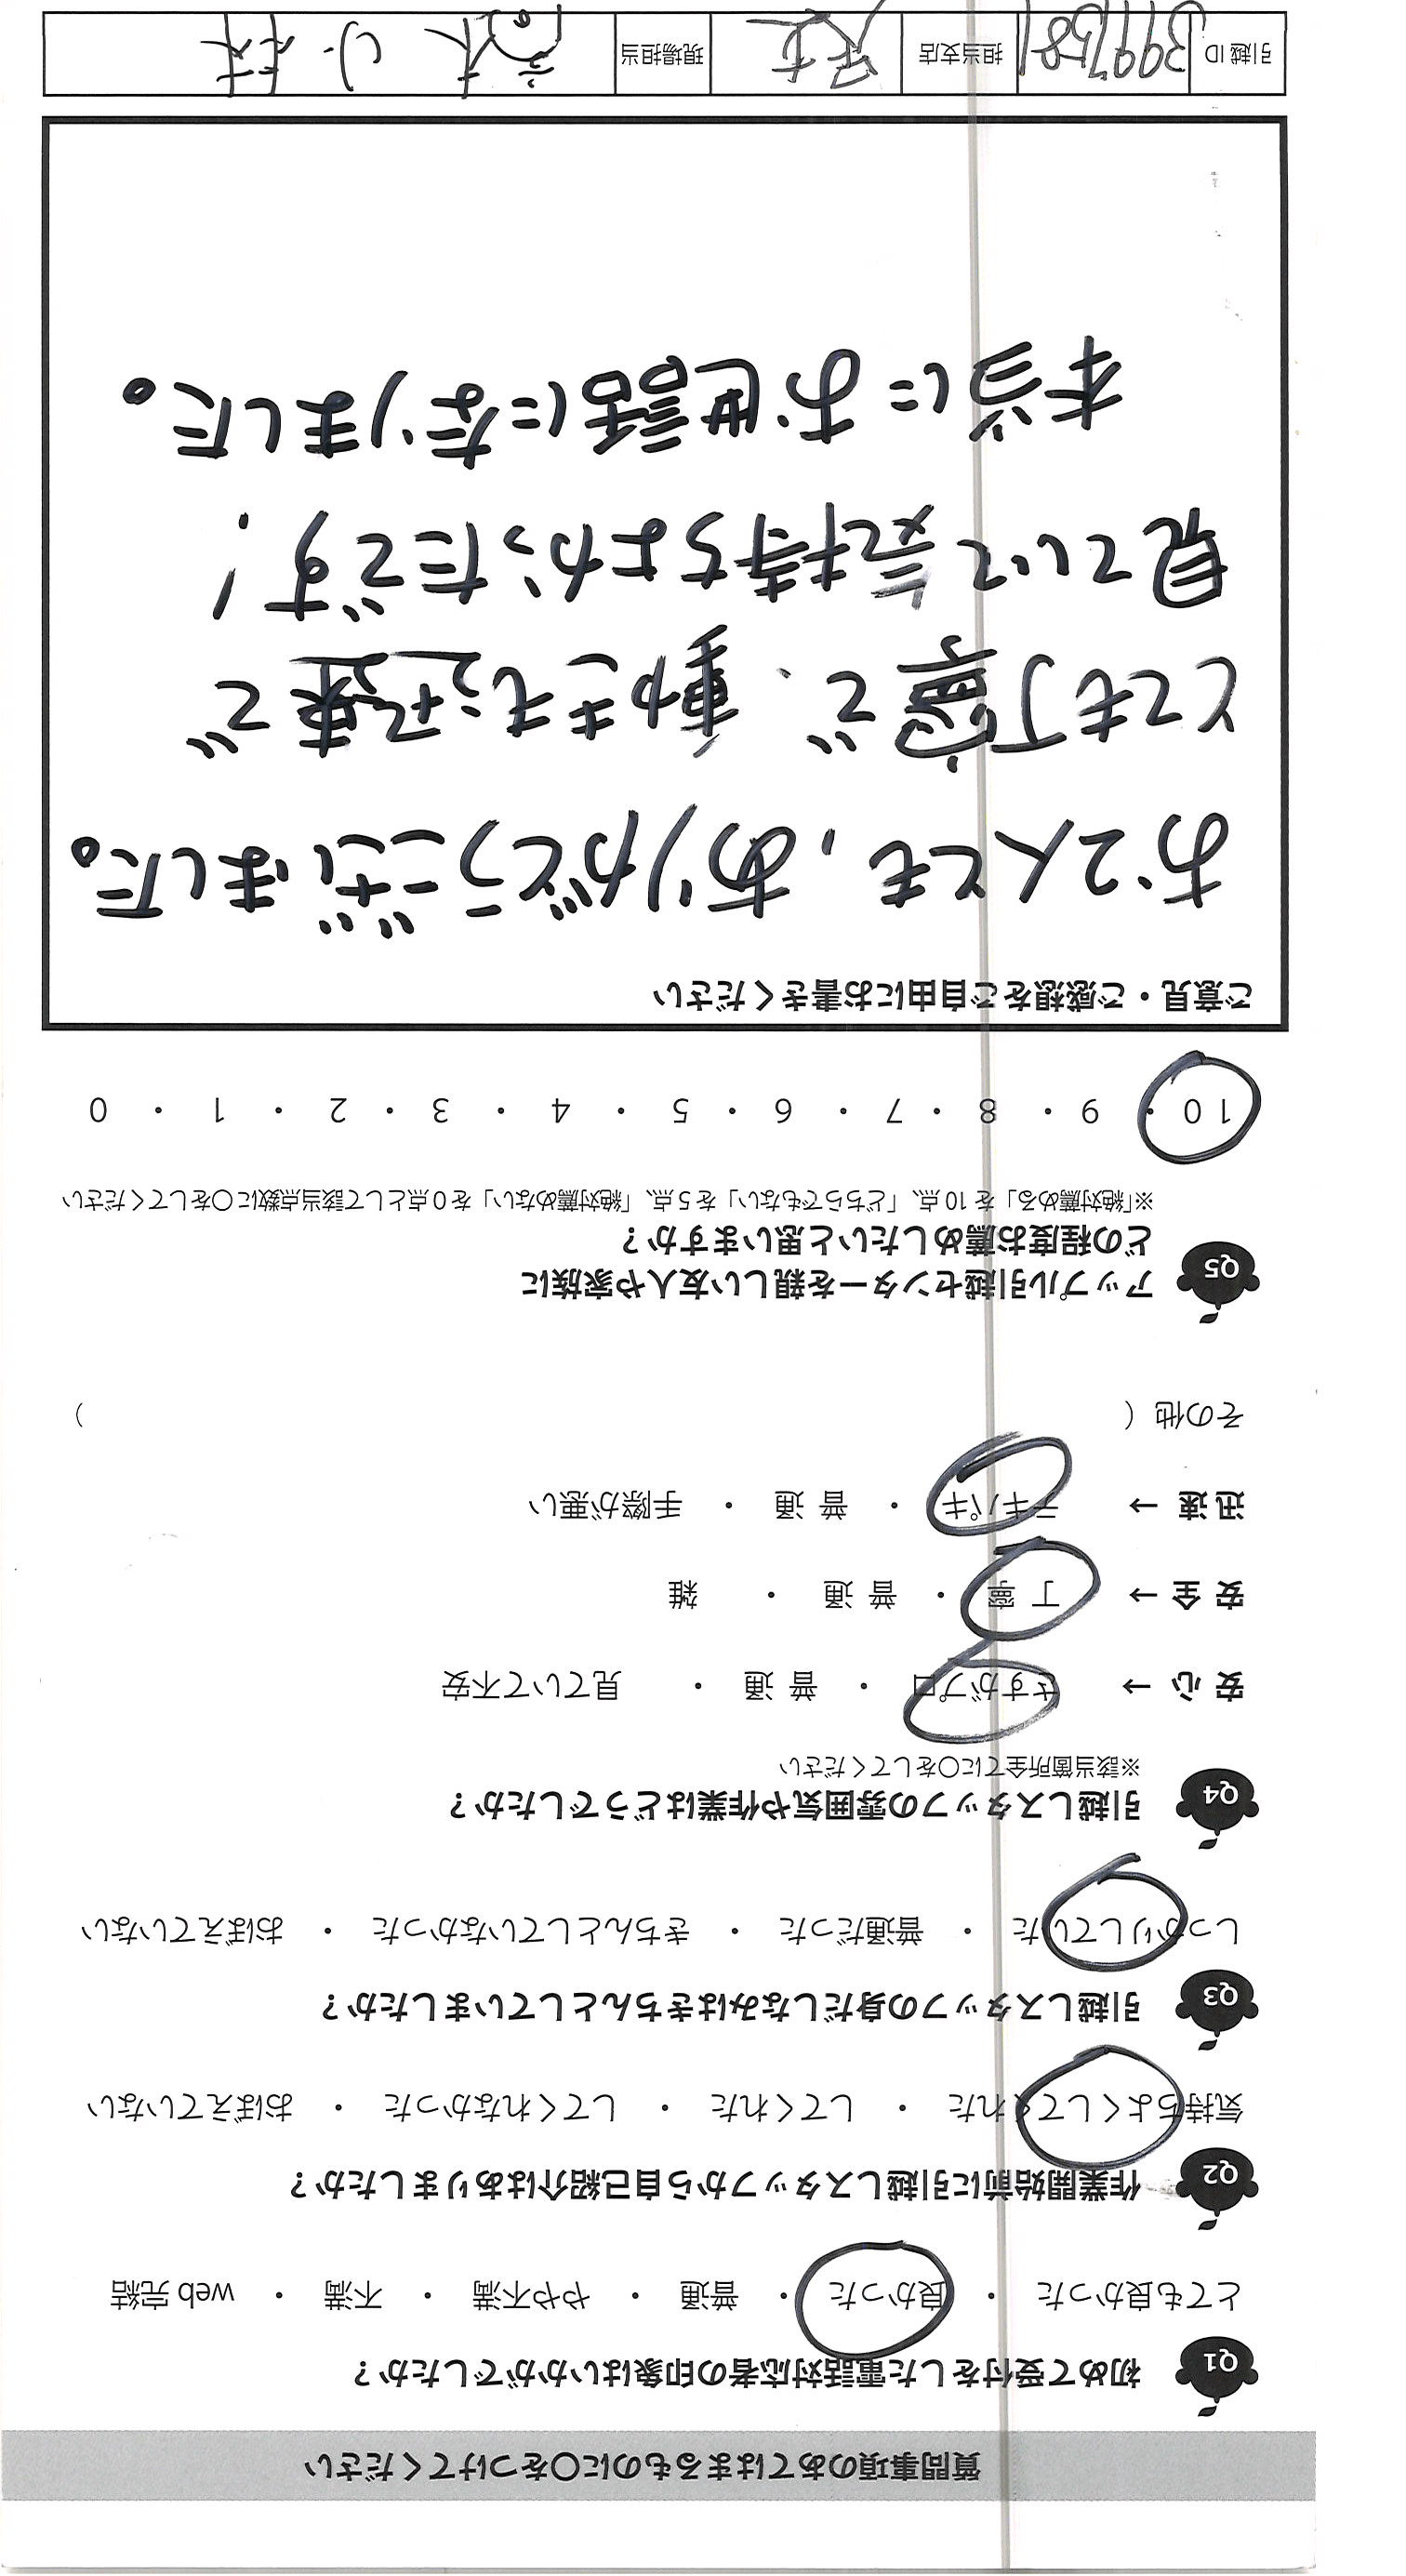 質問事項のあてはまるものに○をつけてください
Q1 初めて受付をした電話対応者の印象はいかがでしたか？
とても良かった ・ 良かった ・ 普通 ・ やや不満 ・ 不満 ・ web 完結
Q2 作業開始前に引越しスタッフから自己紹介はありましたか？
気持ちよくしてくれた ・ してくれた ・ してくれなかった ・ おぼえていない
Q3 引越しスタッフの身だしなみはきちんとしていましたか？
しっかりしていた ・ 普通だった ・ きちんとしていなかった ・ おぼえていない
Q4 引越しスタッフの雰囲気や作業はどうでしたか？
※該当箇所全てに○をしてください
安 心 → さすがプロ ・ 普 通 ・ 見ていて不安
安 全 → 丁 寧 ・ 普 通 ・ 雑
迅 速 → テキパキ ・ 普 通 ・ 手際が悪い
その他（ ）
Q5 アップル引越センターを親しい友人や家族に
どの程度お薦めしたいと思いますか？
※「絶対薦める」を 10 点、「どちらでもない」を 5 点、「絶対薦めない」を 0 点として該当点数に○をしてください
10 ・ 9 ・ 8 ・ 7 ・ 6 ・ 5 ・ 4 ・ 3 ・ 2 ・ 1 ・ 0
ご意見・ご感想をご自由にお書きください
お2人とも，ありがとうございました。
とても丁寧で、動きも迅速で
見ていて気持ちよかったです！
本当にお世話になりました。
引越 ID 3997581 担当支店 現場担当 高木 小林